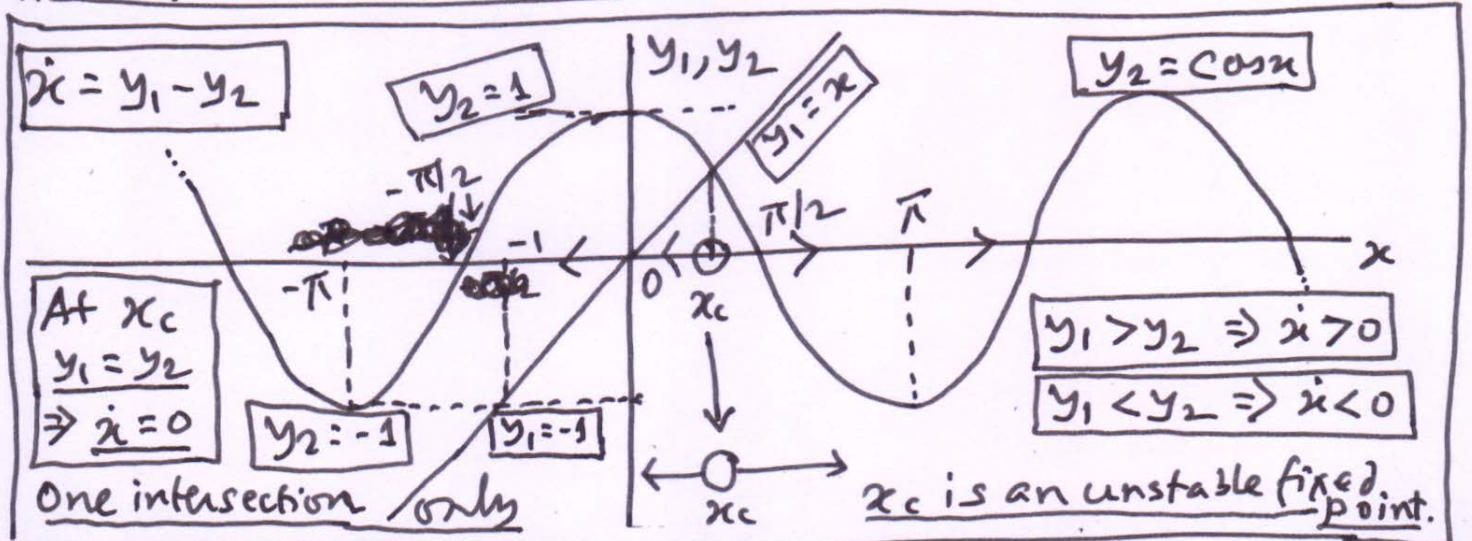 ẋ = y₁ - y₂
y₂ = 1
y₁, y₂
y₁ = x
y₂ = cosx
-π/2
π/2
π
-1
-π
0
x_c
x
At x_c
y₁ = y₂
⇒ ẋ = 0
y₂ = -1
y₁ = -1
y₁ > y₂ ⇒ ẋ > 0
y₁ < y₂ ⇒ ẋ < 0
One intersection only
x_c
x_c is an unstable fixed point.